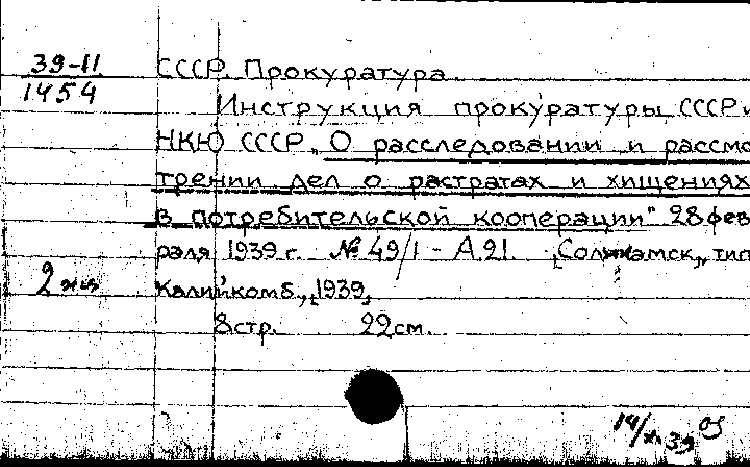 39-11
1454
СССР. Прокуратура.
Инструкция прокуратуры СССР и
НКЮ СССР „О расследовании и рассмо
трении дел о растратах и хищениях
в потребительской кооперации" 28 фев
раля 1939 г. № 49/1-А.21. [Соликамск], тип.
Калийкомб., [1939]
2 экз
8 стр. 22 см.